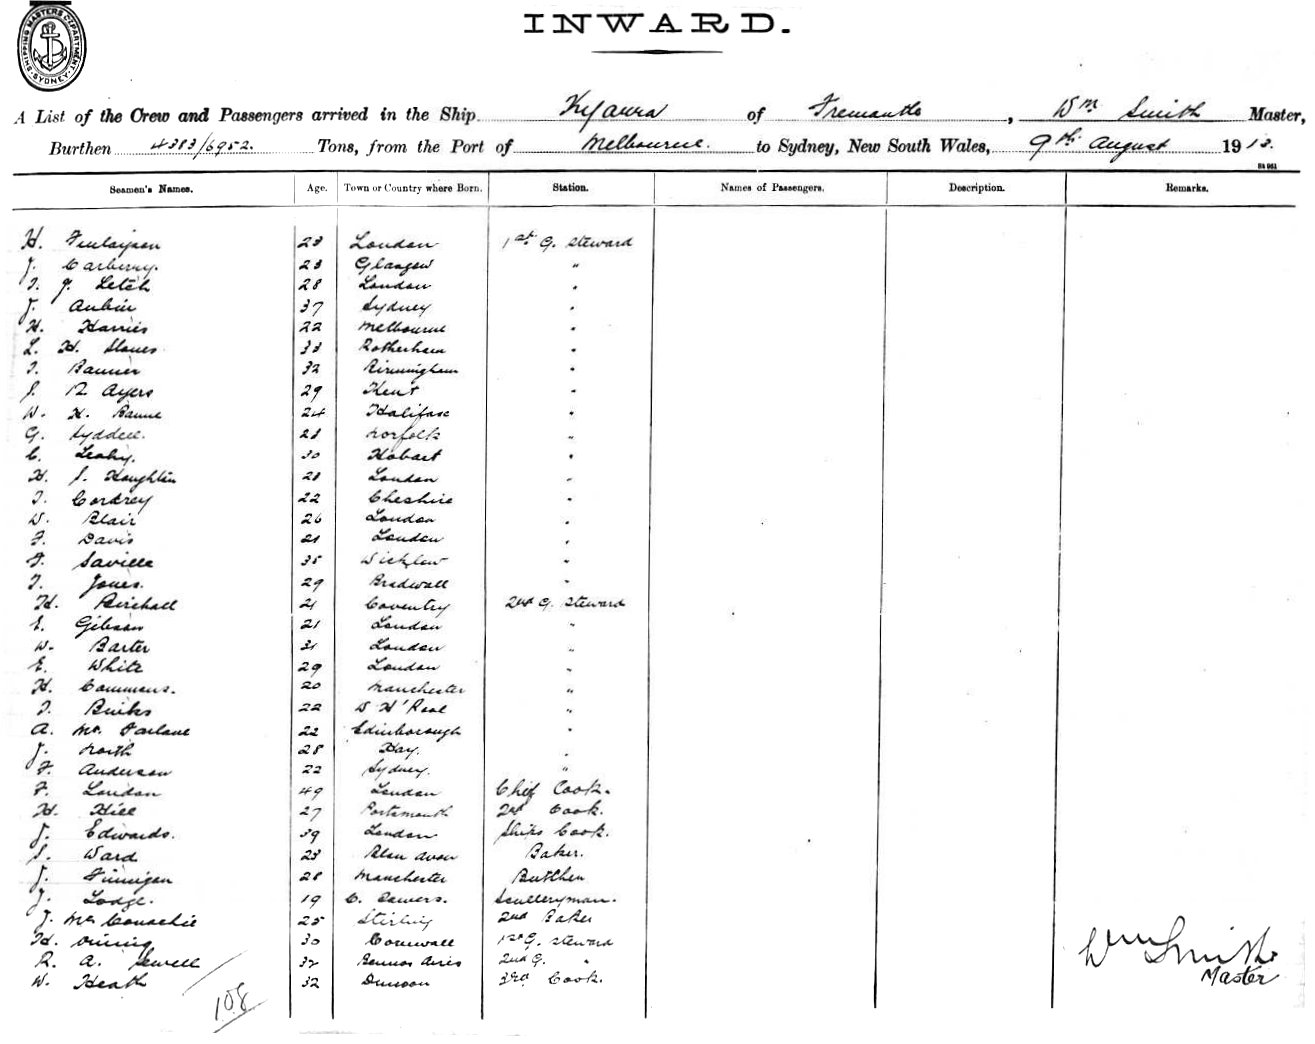 SHIPPING MASTERS DEPARTMENT SYDNEY
INWARD.
A List of the Crew and Passengers arrived in the Ship Kyarra of Fremantle, Wm Smith Master,
Burthen 4383/6952. Tons, from the Port of Melbourne. to Sydney, New South Wales, 9th August 1913.
Seamen's Names. Age. Town or Country where Born. Station. Names of Passengers. Description. Remarks.
H. Finlayson 23 London 1st G. Steward
J. Carberry. 23 Glasgow "
T. J. Letch 28 London "
J. Aubin 37 Sydney "
H. Harries 22 Melbourne "
L. H. 33 Rotherham "
T. Banner 32 Birmingham "
S. R. Ayers 29 Kent "
W. H. 24 Halifax "
G. Lyddell. 23 Norfolk "
C. Leahy. 30 Hobart "
H. S. Houghton 28 London "
T. Cordrey 22 Cheshire "
W. Blair 26 London "
F. Davis 21 London "
F. Saville 35 Wicklow "
T. Jones. 29 Bradwall "
H. Birchall 21 Coventry 2nd G. Steward
E. Gibson 21 London "
W. Barter 31 London "
E. White 29 London "
H. Commons. 20 Manchester "
T. Binks 22 W H'Pool "
A. Mc Farlane 22 Edinborough "
J. North 28 Hay. "
F. Anderson 22 Sydney. "
F. London 49 London Chief Cook.
H. Hill 27 Portsmouth 2nd Cook.
J. Edwards. 39 London Ships Cook.
S. Ward 23 Baker.
J. Finnigan 28 Manchester Butcher
J. Lodge. 19 C. Sculleryman.
J. Mc Conachie 25 Stirling 2nd Baker
H. Vining 30 Cornwall 1st G. Steward
R. A. Sewell 32 Buenos Aires 2nd G. "
W. Heath 32 Dunoon 3rd Cook.
108
Wm Smith
Master